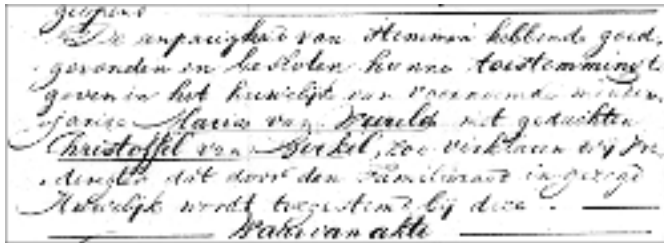 De enparigheid van Stemmen hebbende goed
gevonden en besloten hunne toestemming te
geven in het huwelijk van voornoemde minder
jarige Maria van met gedachten
Christoffel van Berkel, zoo verklaren wij
dat door den Familieraad in gezegd
Huwelijk wordt toegestemd bij deze
Waarvan akte